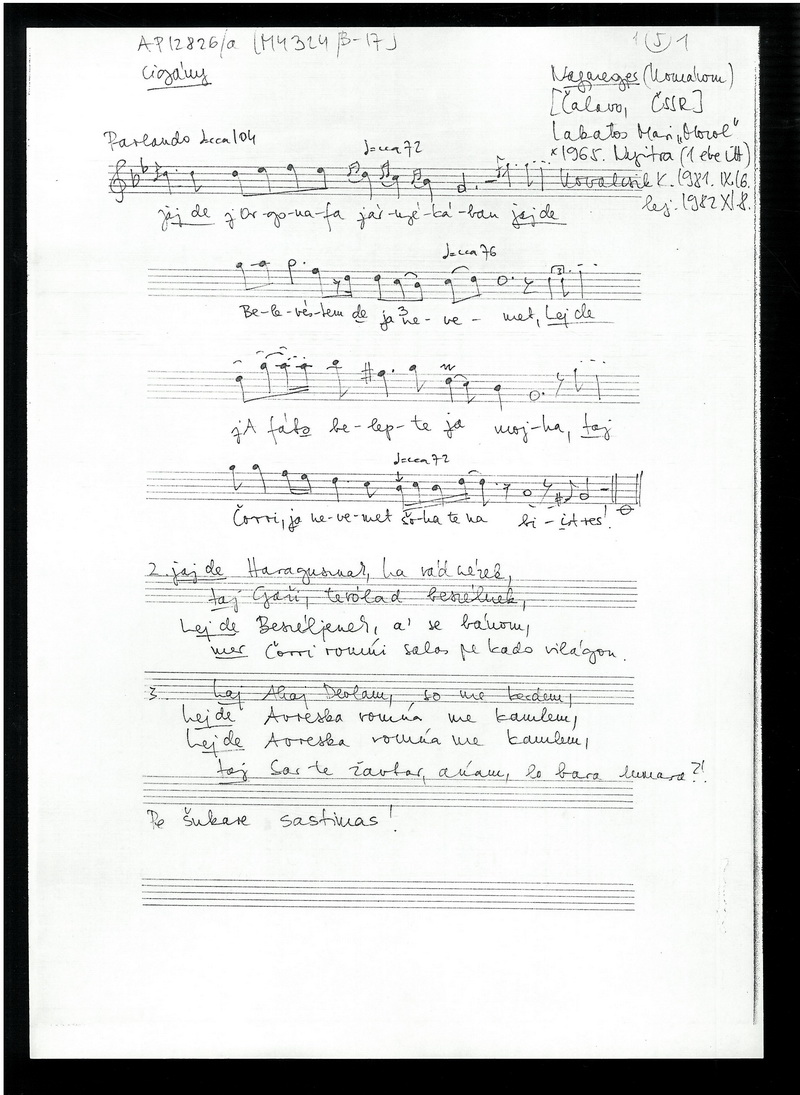 AP12826/a [M4324/B-17] 1 (5) 1
Cigány
Nagymegyer (Komárom)
[Čalovo, ČSSR]
Lakatos Mari
*1965. Nyitra (1 éve itt)
Kovalcsik K. 1981. IX. 16.
lej. 1982 XI 8.
Parlando ♩=cca 104
♩=cca 72
jaj de j Or-go-na-fa jár-nyé-ká-ban jaj de
♩=cca 76
Be-le-vés-tem de ja ne-ve-met, Lej de
jA fát be-lep-te ja moj-ha, taj
♩=cca 72
Čorri, ja ne-ve-met šo-ha te na
2. jaj de Haragusznak, ha rád nézek,
taj Gaži, terólad beszélnek,
Lej de Beszéljenek, a' se bánom,
mer Čorri romńi salas pe kado világon.
3. haj Devlam, so me kerdem,
Lej de Avreska romńa me kamlem,
Lej de Avreska romńa me kamlem,
taj Sar te žavtar, ańam, lo bara lumara?!
Pe šukare sastimas!